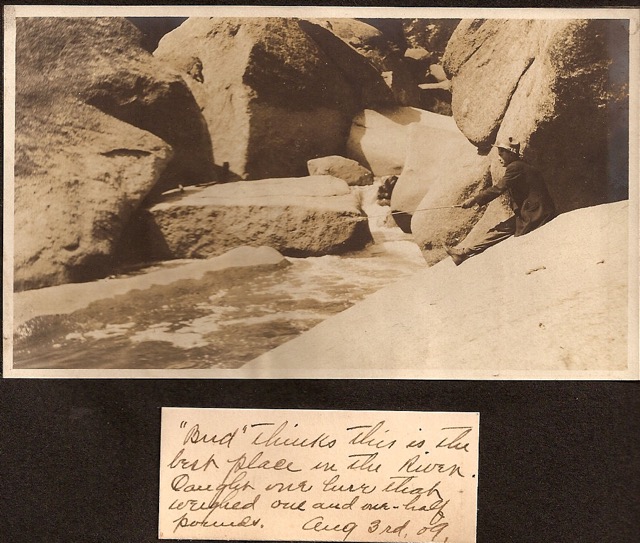 "Bud" thinks this is the
best place in the River.
Caught one here that
weighed one and one-half
pounds. Aug 3rd, 09,